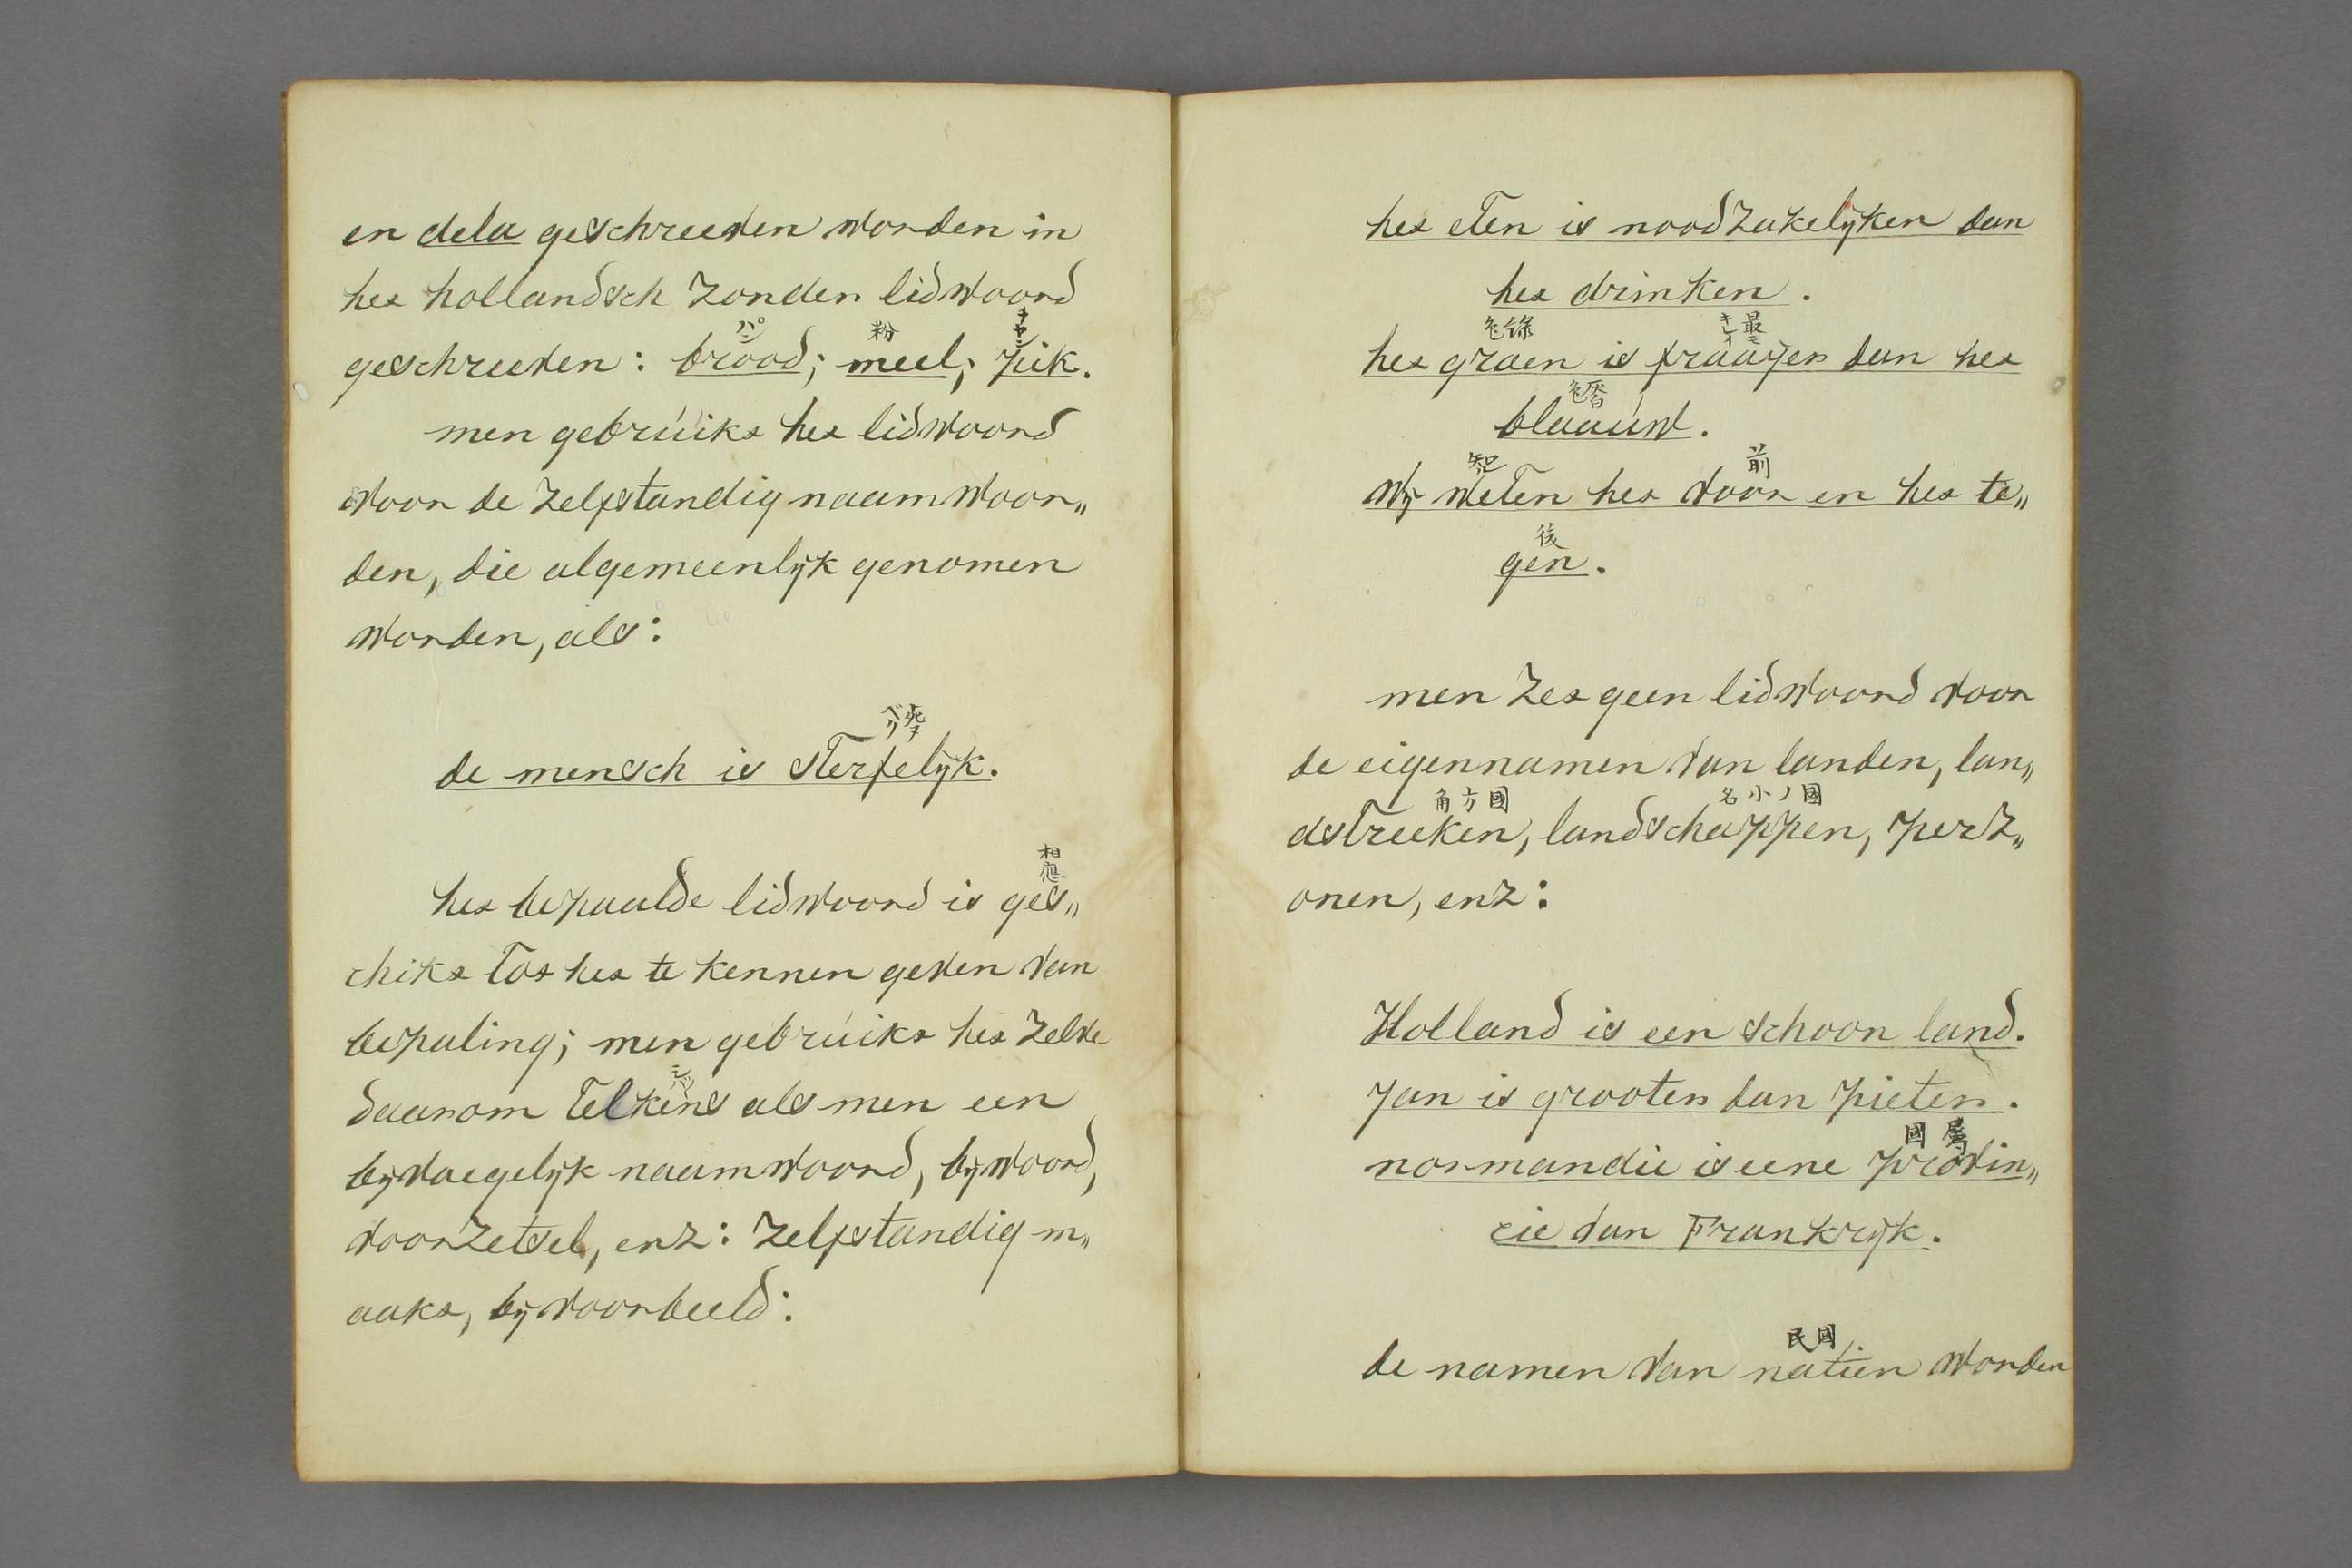 en dela geschreeven worden in
het hollandsch zonder lidwoord
パン 粉 チャン
geschreeven: brood; meel; pik.
men gebrúikt het lidwoord
voor de zelfstandig naamwoor„
den, die algemeenlijk genomen
worden, als:
死スベリ
de mensch is sterfelijk.
相應
het bepaalde lidwoord is ges„
chikt tot het te kennen geven van
bepaling; men gebrúikt het zelve
daarom telkens als men een
bijvoegelijk naamwoord, bijwoord,
voorzetsel, enz: zelfstandig m„
aakt, bij voorbeeld:
het eten is noodzakelijker dan
het drinken.
色緑 最モキレイ
het groen is fraaijer dan het
blaaúw.
知 前
wij weten het voor en het te„
後
gen.
men zet geen lidwoord voor
de eigennamen van landen, lan„
角方國 名小ノ國
dstreeken, landschappen, perz„
onen, enz:
Holland is een schoon land.
Jan is grooter dan pieter.
國屬
normandie is eene provin„
cie van Frankrijk.
民國
de namen van natien worden